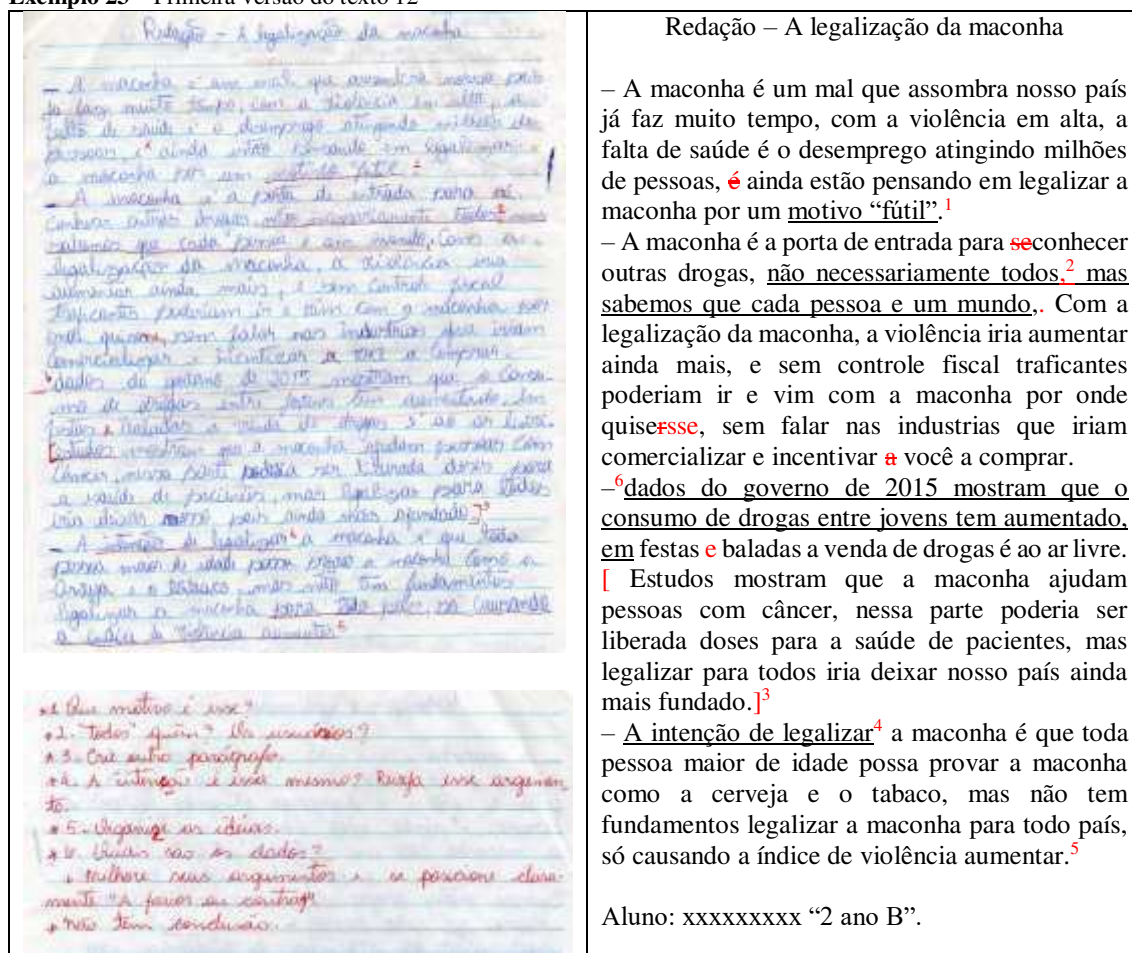 Exemplo 23 – Primeira versão do texto 12
Redação – A legalização da maconha
– A maconha é um mal que assombra nosso país
já faz muito tempo, com a violência em alta, a
falta de saúde é o desemprego atingindo milhões de
pessoas, é ainda estão pensando em legalizar
a maconha por um motivo fútil. 1
– A maconha é a porta de entrada para
conhecer outras drogas, não necessariamente todos, 2 mas
sabemos que cada pessoa e um mundo, Com a
legalização da maconha, a violência iria
aumentar ainda mais, e sem controle fiscal
traficantes poderiam ir e vim com a maconha por
onde, sem falar nas industrias que iriam
comercializar e incentivar a você a comprar.
dados do governo de 2015 mostram que o consu-
mo de drogas entre jovens tem aumentado, em
festas e baladas a venda de drogas é ao ar livre.
[Estudos mostram que a maconha ajudam pessoas com
câncer, nessa parte poderia ser liberada doses para
a saúde de pacientes, mas legalizar para todos
iria deixar nosso país ainda mais afundado.]3
– A intenção de legalizar 4 a maconha é que toda
pessoa maior de idade possa provar a maconha como a
cerveja e o tabaco, mas não tem fundamentos
legalizar a maconha para todo país, só causando
a índice de violência aumentar. 5
*1 Que motivo é esse?
*2. "Todos" quem? Os usuários?
*3. Crie outro parágrafo.
*4. A intenção é essa mesmo? Reveja esse argumen-
to.
*5. Organize as ideias.
*6. Quais são os dados?
* Melhore seus argumentos e se posicione clara-
mente "A favor ou contra?"
* Não tem conclusão.
Redação – A legalização da maconha
– A maconha é um mal que assombra nosso país
já faz muito tempo, com a violência em alta, a
falta de saúde é o desemprego atingindo milhões
de pessoas, é ainda estão pensando em legalizar a
maconha por um motivo “fútil”.1
– A maconha é a porta de entrada para seconhecer
outras drogas, não necessariamente todos,2 mas
sabemos que cada pessoa e um mundo,. Com a
legalização da maconha, a violência iria aumentar
ainda mais, e sem controle fiscal traficantes
poderiam ir e vim com a maconha por onde
quisersse, sem falar nas industrias que iriam
comercializar e incentivar a você a comprar.
–6dados do governo de 2015 mostram que o
consumo de drogas entre jovens tem aumentado,
em festas e baladas a venda de drogas é ao ar livre.
[ Estudos mostram que a maconha ajudam
pessoas com câncer, nessa parte poderia ser
liberada doses para a saúde de pacientes, mas
legalizar para todos iria deixar nosso país ainda
mais fundado.]3
– A intenção de legalizar4 a maconha é que toda
pessoa maior de idade possa provar a maconha
como a cerveja e o tabaco, mas não tem
fundamentos legalizar a maconha para todo país,
só causando a índice de violência aumentar.5
Aluno: xxxxxxxxx “2 ano B”.